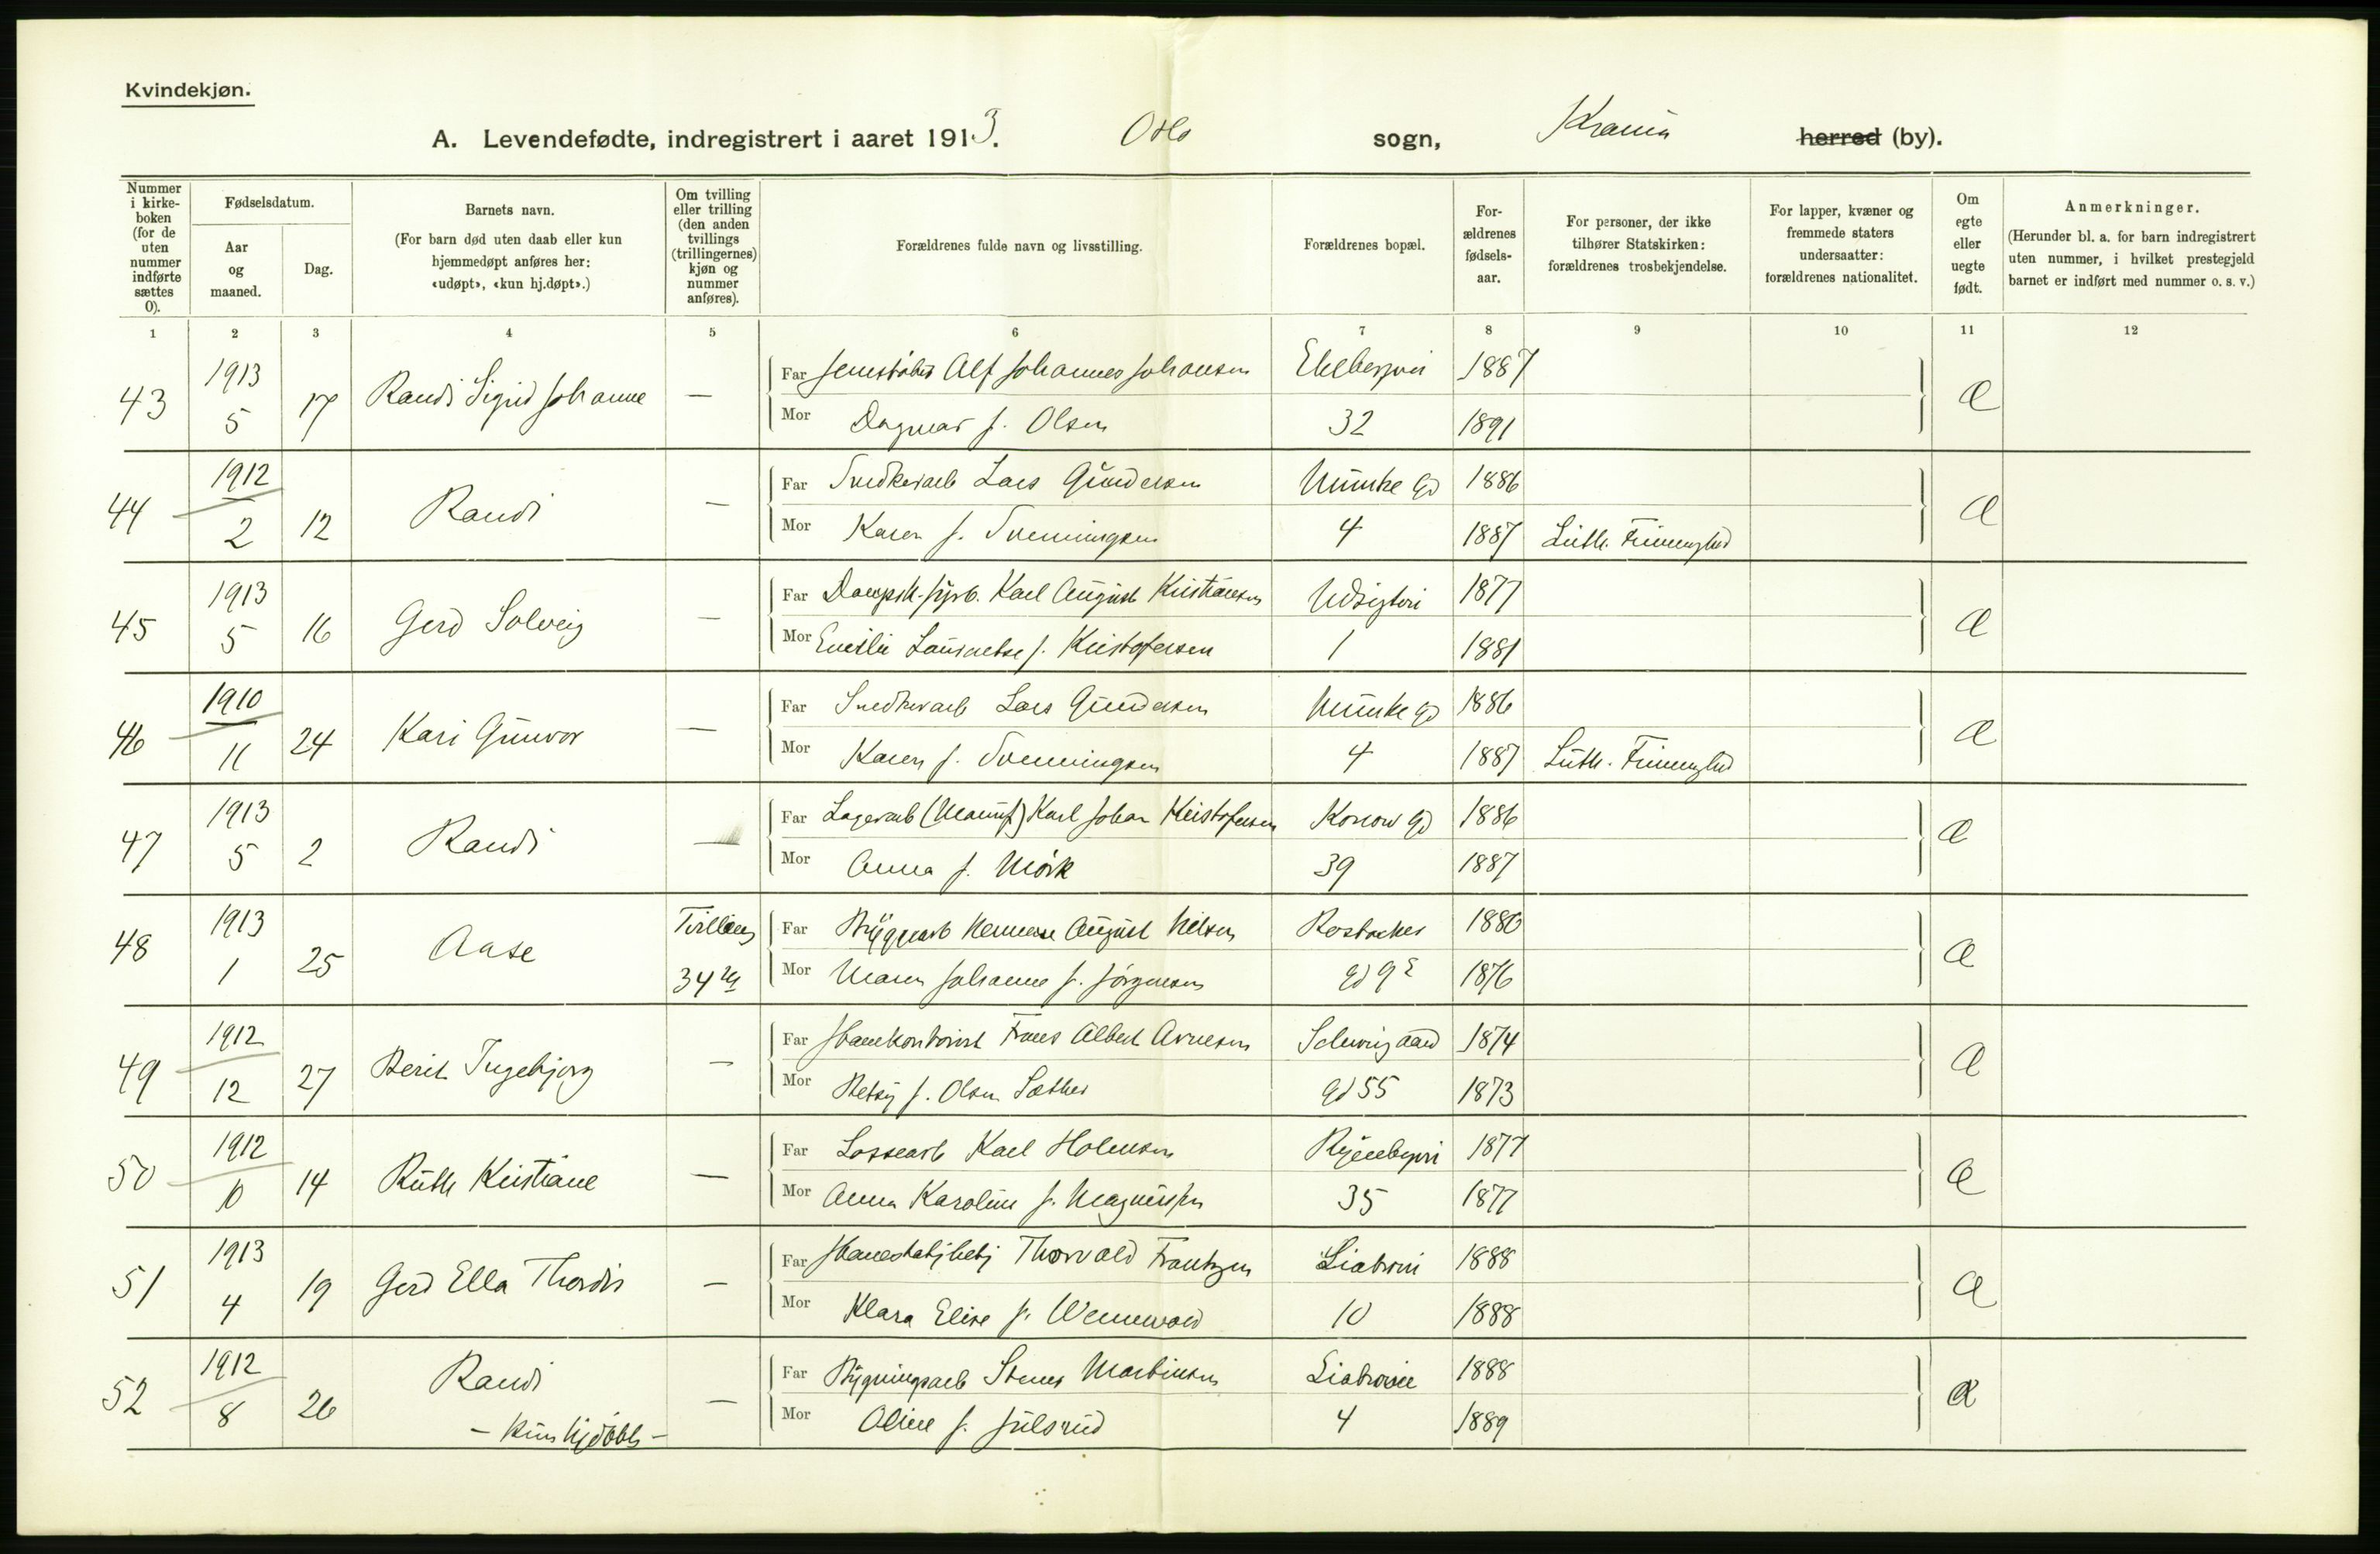 Kvindekjøn.
A. Levendefødte, indregistrert i aaret 1913. Oslo sogn, Krania herred (by).
Nummer i kirke-boken (for de uten nummer indførte sættes 0).
Fødselsdatum.
Aar og maaned.
Dag.
Barnets navn.
(For barn død uten daab eller kun hjemmedøpt anføres her: «udøpt», «kun hj.døpt».)
Om tvilling eller trilling (den anden tvillings (trillingernes) kjøn og nummer anføres).
Forældrenes fulde navn og livsstilling.
Forældrenes bopæl.
For-ældrenes fødsels-aar.
For personer, der ikke tilhører Statskirken: forældrenes trosbekjendelse.
For lapper, kvæner og fremmede staters undersaatter: forældrenes nationalitet.
Om egte eller uegte født.
Anmerkninger.
(Herunder bl. a. for barn indregistrert uten nummer, i hvilket prestegjeld barnet er indført med nummer o. s. v.)
1 2 3 4 5 6 7 8 9 10 11 12
43 1913 5 17 Randi Sigrid Johanne —
Far Alf Johannes Johansen 1887
Mor Dagmar f. Olsen 32 1891
44 1912 2 12 Randi —
Far Snedkerarb Lars Gundersen Munke Gd 1886
Mor Karen f. Svenningsen 4 1887 Luth. Frimenighed
45 1913 5 16 Gerd Solveig —
Far Karl August Kristiansen Udsigtvei 1877
Mor Emilie f. Kristofersen 1 1881
46 1910 11 24 Kari Gunvor —
Far Snedkerarb Lars Gundersen Munke Gd 1886
Mor Karen f. Svenningsen 4 1887 Luth. Frimenighed
47 1913 5 2 Randi —
Far Lagerarb Karl Johan Kristofersen Konow Gd 1886
Mor Anna f. Mörk 39 1887
48 1913 1 25 Aase Tvilling 34
Far Bryggearb Herman August Nilsen Rostocker 1880
Mor Maren Johanne f. Jörgensen Gd 9 1876
49 1912 12 27 Berit Ingebjorg —
Far Frans Albert Arnesen Schweigaard 1874
Mor Betsy f. Olsen Sæther Gd 55 1873
50 1912 10 14 Ruth Kristiane —
Far Lossearb Karl Holmsen Ryenbergvei 1877
Mor Anna Karoline f. Magnussen 35 1877
51 1913 4 19 Gerd Ella Thordis —
Far Thorvald Frantzen Liabrovei 1888
Mor Klara Elise f. Wennevold 10 1888
52 1912 8 26 Randi —
Far Bygningsarb Martinsen Liabrovei 1888
— kun hjdöbt —
Mor Oline f. Julsrud 4 1889